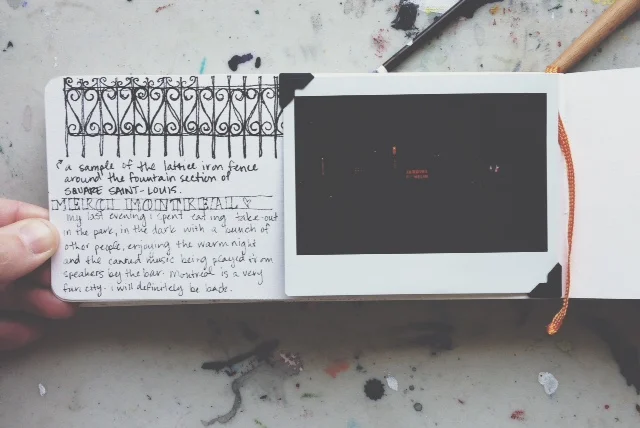 a sample of the lattice iron fence
around the fountain section of
SQUARE SAINT-LOUIS.
MERCI MONTREAL
my last evening i spent eating take-out
in the park, in the dark with a bunch of
other people, enjoying the warm night
and the canned music being played from
speakers by the bar. Montreal is a very
fun city. i will definitely be back.